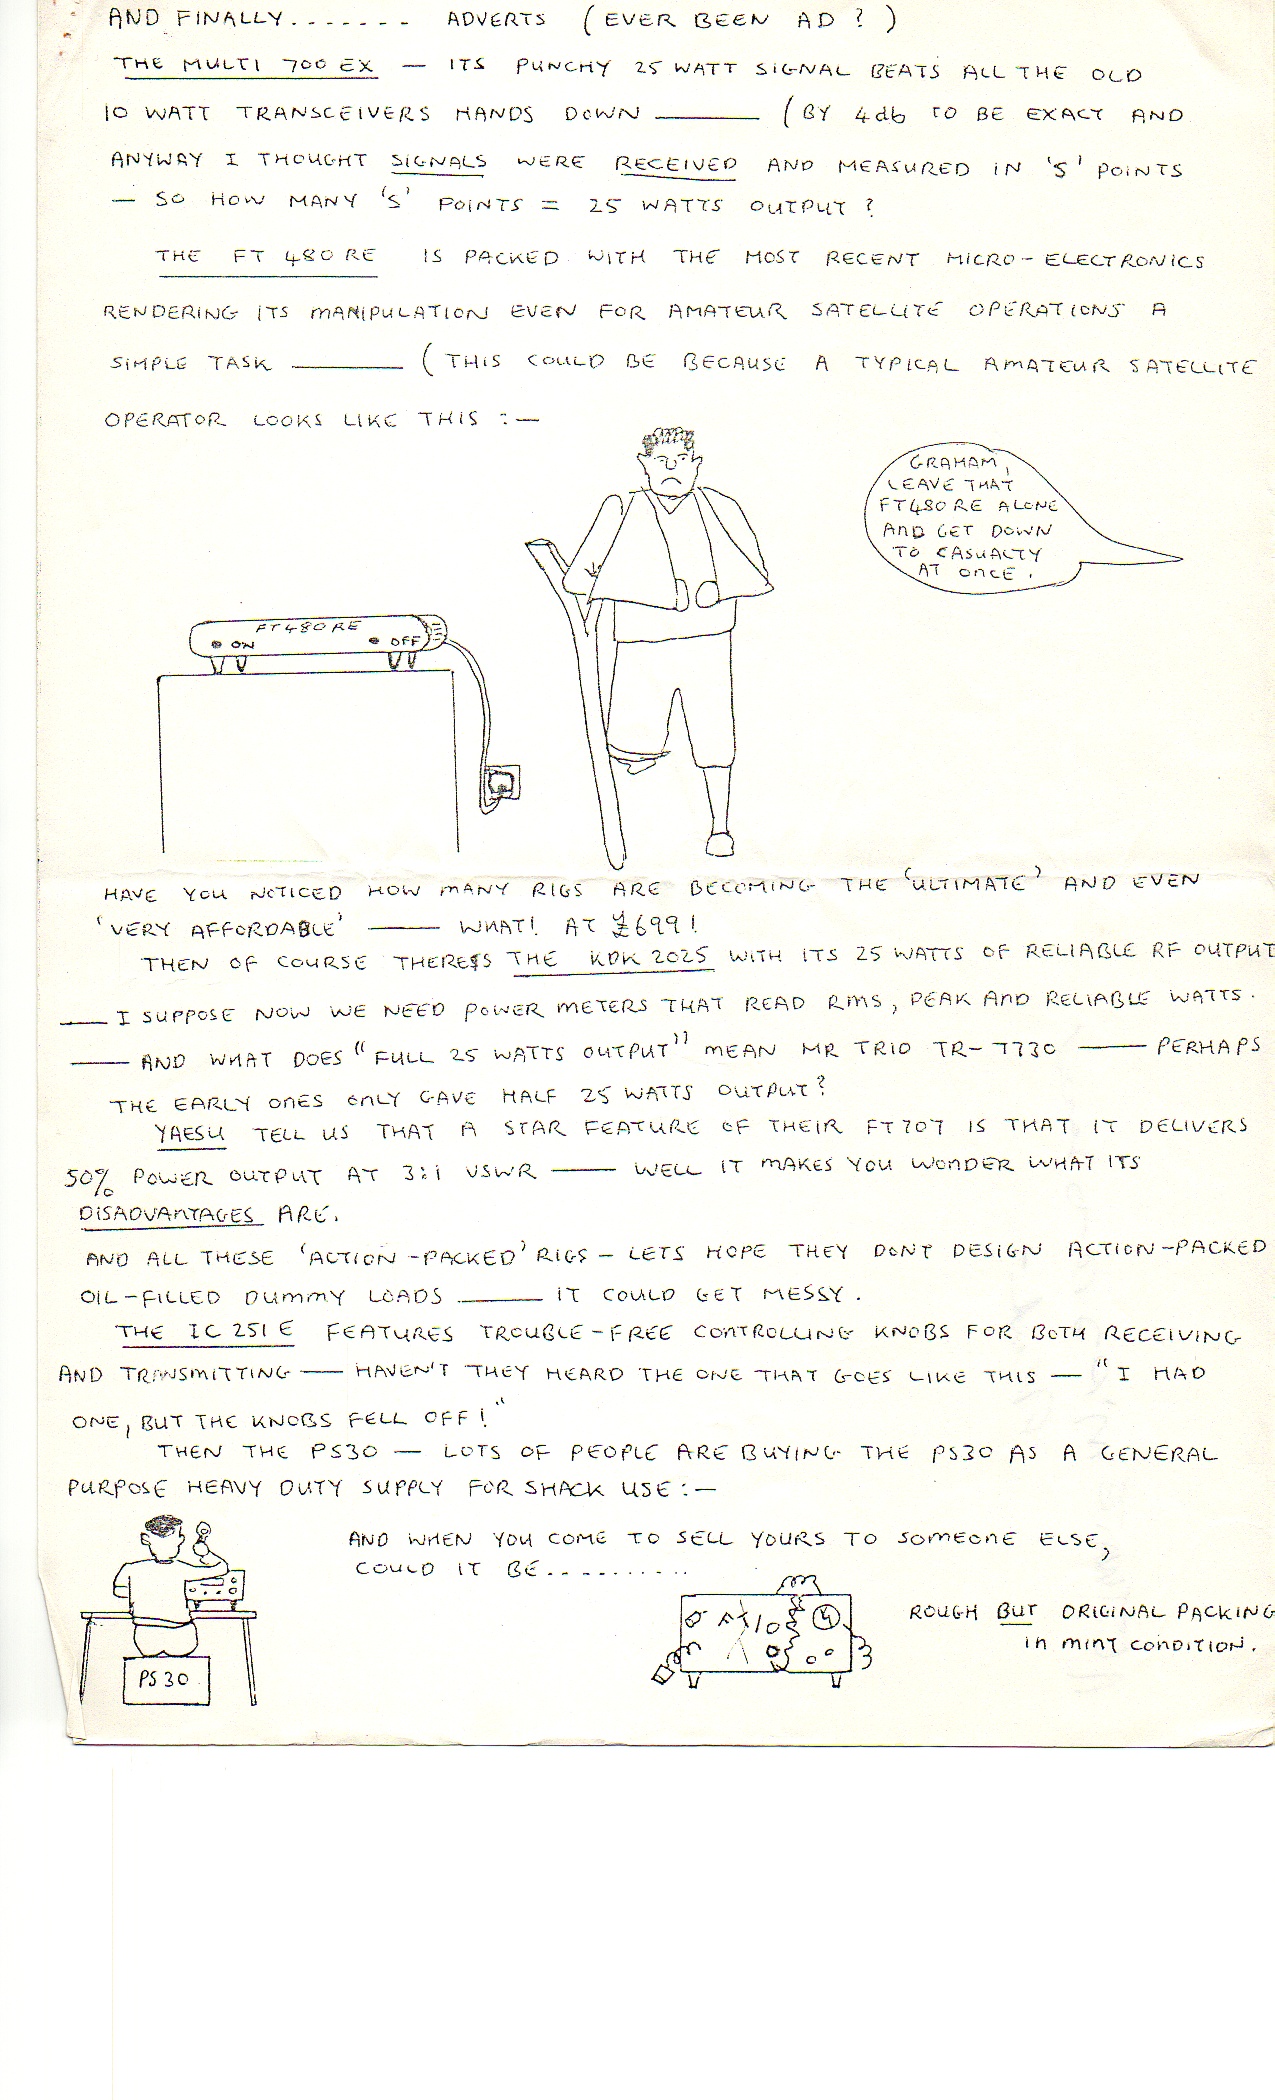 AND FINALLY....... ADVERTS (EVER BEEN AD ?)
THE MULTI 700 EX — ITS PUNCHY 25 WATT SIGNAL BEATS ALL THE OLD
10 WATT TRANSCEIVERS HANDS DOWN —— (BY 4db TO BE EXACT AND
ANYWAY I THOUGHT SIGNALS WERE RECEIVED AND MEASURED IN 'S' POINTS
— SO HOW MANY 'S' POINTS = 25 WATTS OUTPUT ?
THE FT 480 RE IS PACKED WITH THE MOST RECENT MICRO-ELECTRONICS
RENDERING ITS MANIPULATION EVEN FOR AMATEUR SATELLITE OPERATIONS A
SIMPLE TASK —— (THIS COULD BE BECAUSE A TYPICAL AMATEUR SATELLITE
OPERATOR LOOKS LIKE THIS :—
GRAHAM,
LEAVE THAT
FT480 RE ALONE
AND GET DOWN
TO CASUALTY
AT ONCE.
FT480RE
ON OFF
HAVE YOU NOTICED HOW MANY RIGS ARE BECOMING THE 'ULTIMATE' AND EVEN
'VERY AFFORDABLE' —— WHAT! AT £699!
THEN OF COURSE THERES THE KDK 2025 WITH ITS 25 WATTS OF RELIABLE RF OUTPUT
—— I SUPPOSE NOW WE NEED POWER METERS THAT READ RMS, PEAK AND RELIABLE WATTS.
—— AND WHAT DOES "FULL 25 WATTS OUTPUT" MEAN MR TRIO TR-7730 —— PERHAPS
THE EARLY ONES ONLY GAVE HALF 25 WATTS OUTPUT?
YAESU TELL US THAT A STAR FEATURE OF THEIR FT707 IS THAT IT DELIVERS
50% POWER OUTPUT AT 3:1 VSWR —— WELL IT MAKES YOU WONDER WHAT ITS
DISADVANTAGES ARE.
AND ALL THESE 'ACTION-PACKED' RIGS - LETS HOPE THEY DONT DESIGN ACTION-PACKED
OIL-FILLED DUMMY LOADS —— IT COULD GET MESSY.
THE IC 251 E FEATURES TROUBLE-FREE CONTROLLING KNOBS FOR BOTH RECEIVING
AND TRANSMITTING —— HAVEN'T THEY HEARD THE ONE THAT GOES LIKE THIS — "I HAD
ONE, BUT THE KNOBS FELL OFF!"
THEN THE PS30 — LOTS OF PEOPLE ARE BUYING THE PS30 AS A GENERAL
PURPOSE HEAVY DUTY SUPPLY FOR SHACK USE :—
AND WHEN YOU COME TO SELL YOURS TO SOMEONE ELSE,
COULD IT BE..........
ROUGH BUT ORIGINAL PACKING
IN MINT CONDITION.
PS 30